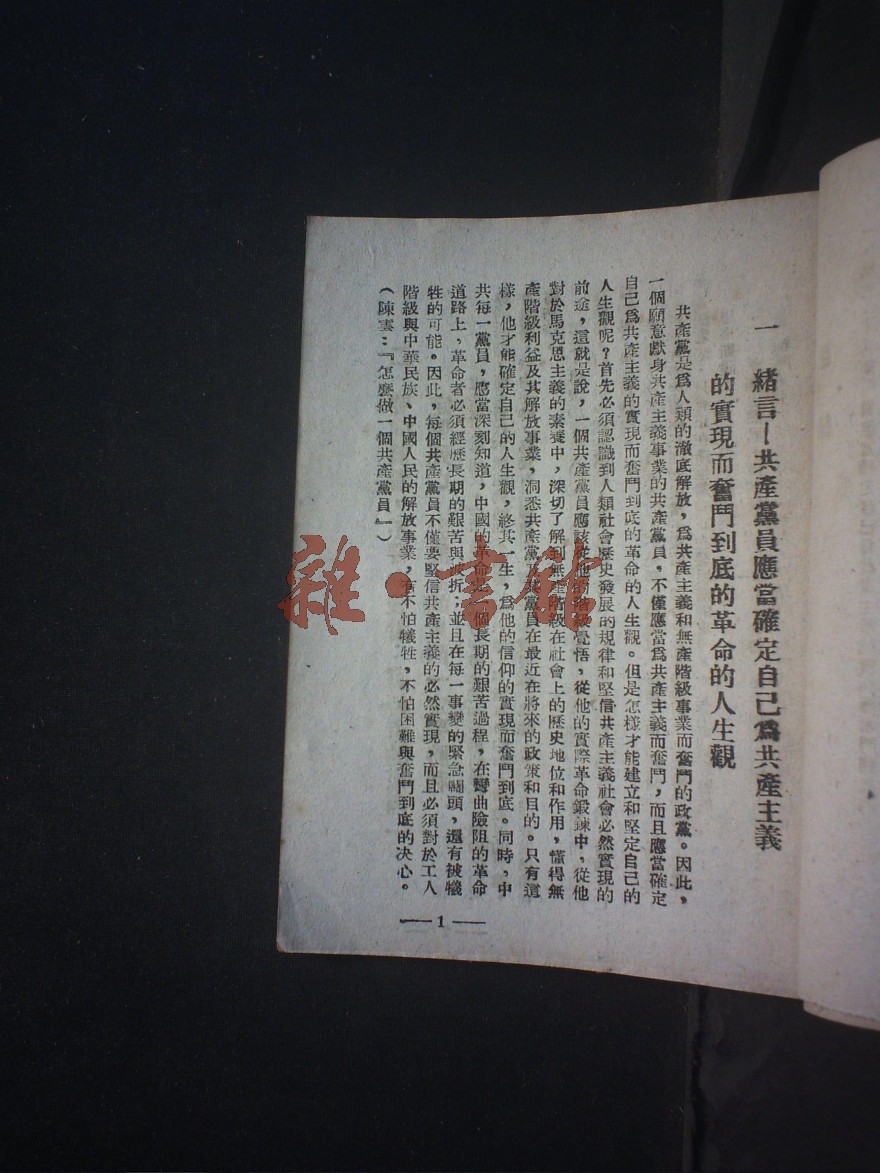 一　緒言—共產黨員應當確定自己爲共產主義
的實現而奮鬥到底的革命的人生觀
共產黨是爲人類的澈底解放，爲共產主義和無產階級事業而奮鬥的政黨。因此，
一個願意獻身共產主義事業的共產黨員，不僅應當爲共產主義而奮鬥，而且應當確定
自己爲共產主義的實現而奮鬥到底的革命的人生觀。但是怎樣才能建立和堅定自己的
人生觀呢？首先必須認識到人類社會歷史發展的規律和堅信共產主義社會必然實現的
前途，這就是說，一個共產黨員應該從他的階級覺悟，從他的實際革命鍛鍊中，從他
對於馬克思主義的素養中，深切了解到無產階級在社會上的歷史地位和作用，懂得無
產階級利益及其解放事業，洞悉共產黨及其黨員在最近在將來的政策和目的。只有這
樣，他才能確定自己的人生觀，終其一生，爲他的信仰的實現而奮鬥到底。同時，中
共每一黨員，應當深刻知道，中國的革命是一個長期的艱苦過程，在彎曲險阻的革命
道路上，革命者必須經歷長期的艱苦與波折；並且在每一事變的緊急關頭，還有被犧
牲的可能。因此，每個共產黨員不僅要堅信共產主義的必然實現，而且必須對於工人
階級與中華民族、中國人民的解放事業，有不怕犧牲，不怕困難與奮鬥到底的决心。
（陳雲：『怎麽做一個共產黨員』）
— 1 —
雜·書館